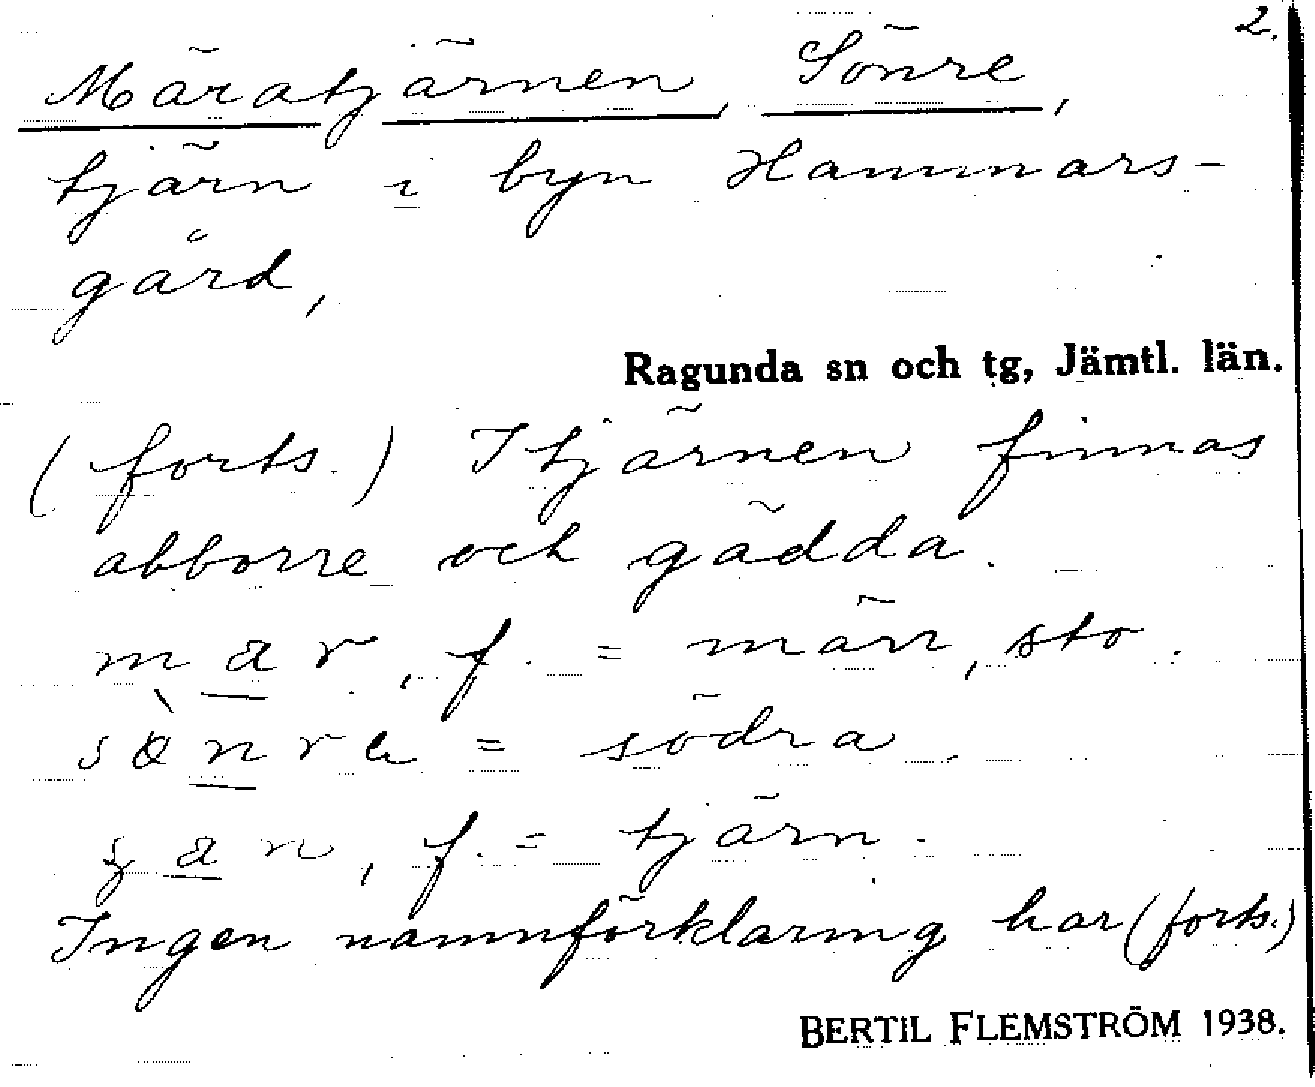 2.
Märatjärnen, Sönre,
tjärn i byn Hammars-
gård,
Ragunda sn och tg, Jämtl. län.
(forts.) I tjärnen finnas
abborre och gädda.
mar, f. = märr, sto.
= södra.
f. = tjärn.
Ingen namnförklaring har (forts.)
BERTIL FLEMSTRÖM 1938.